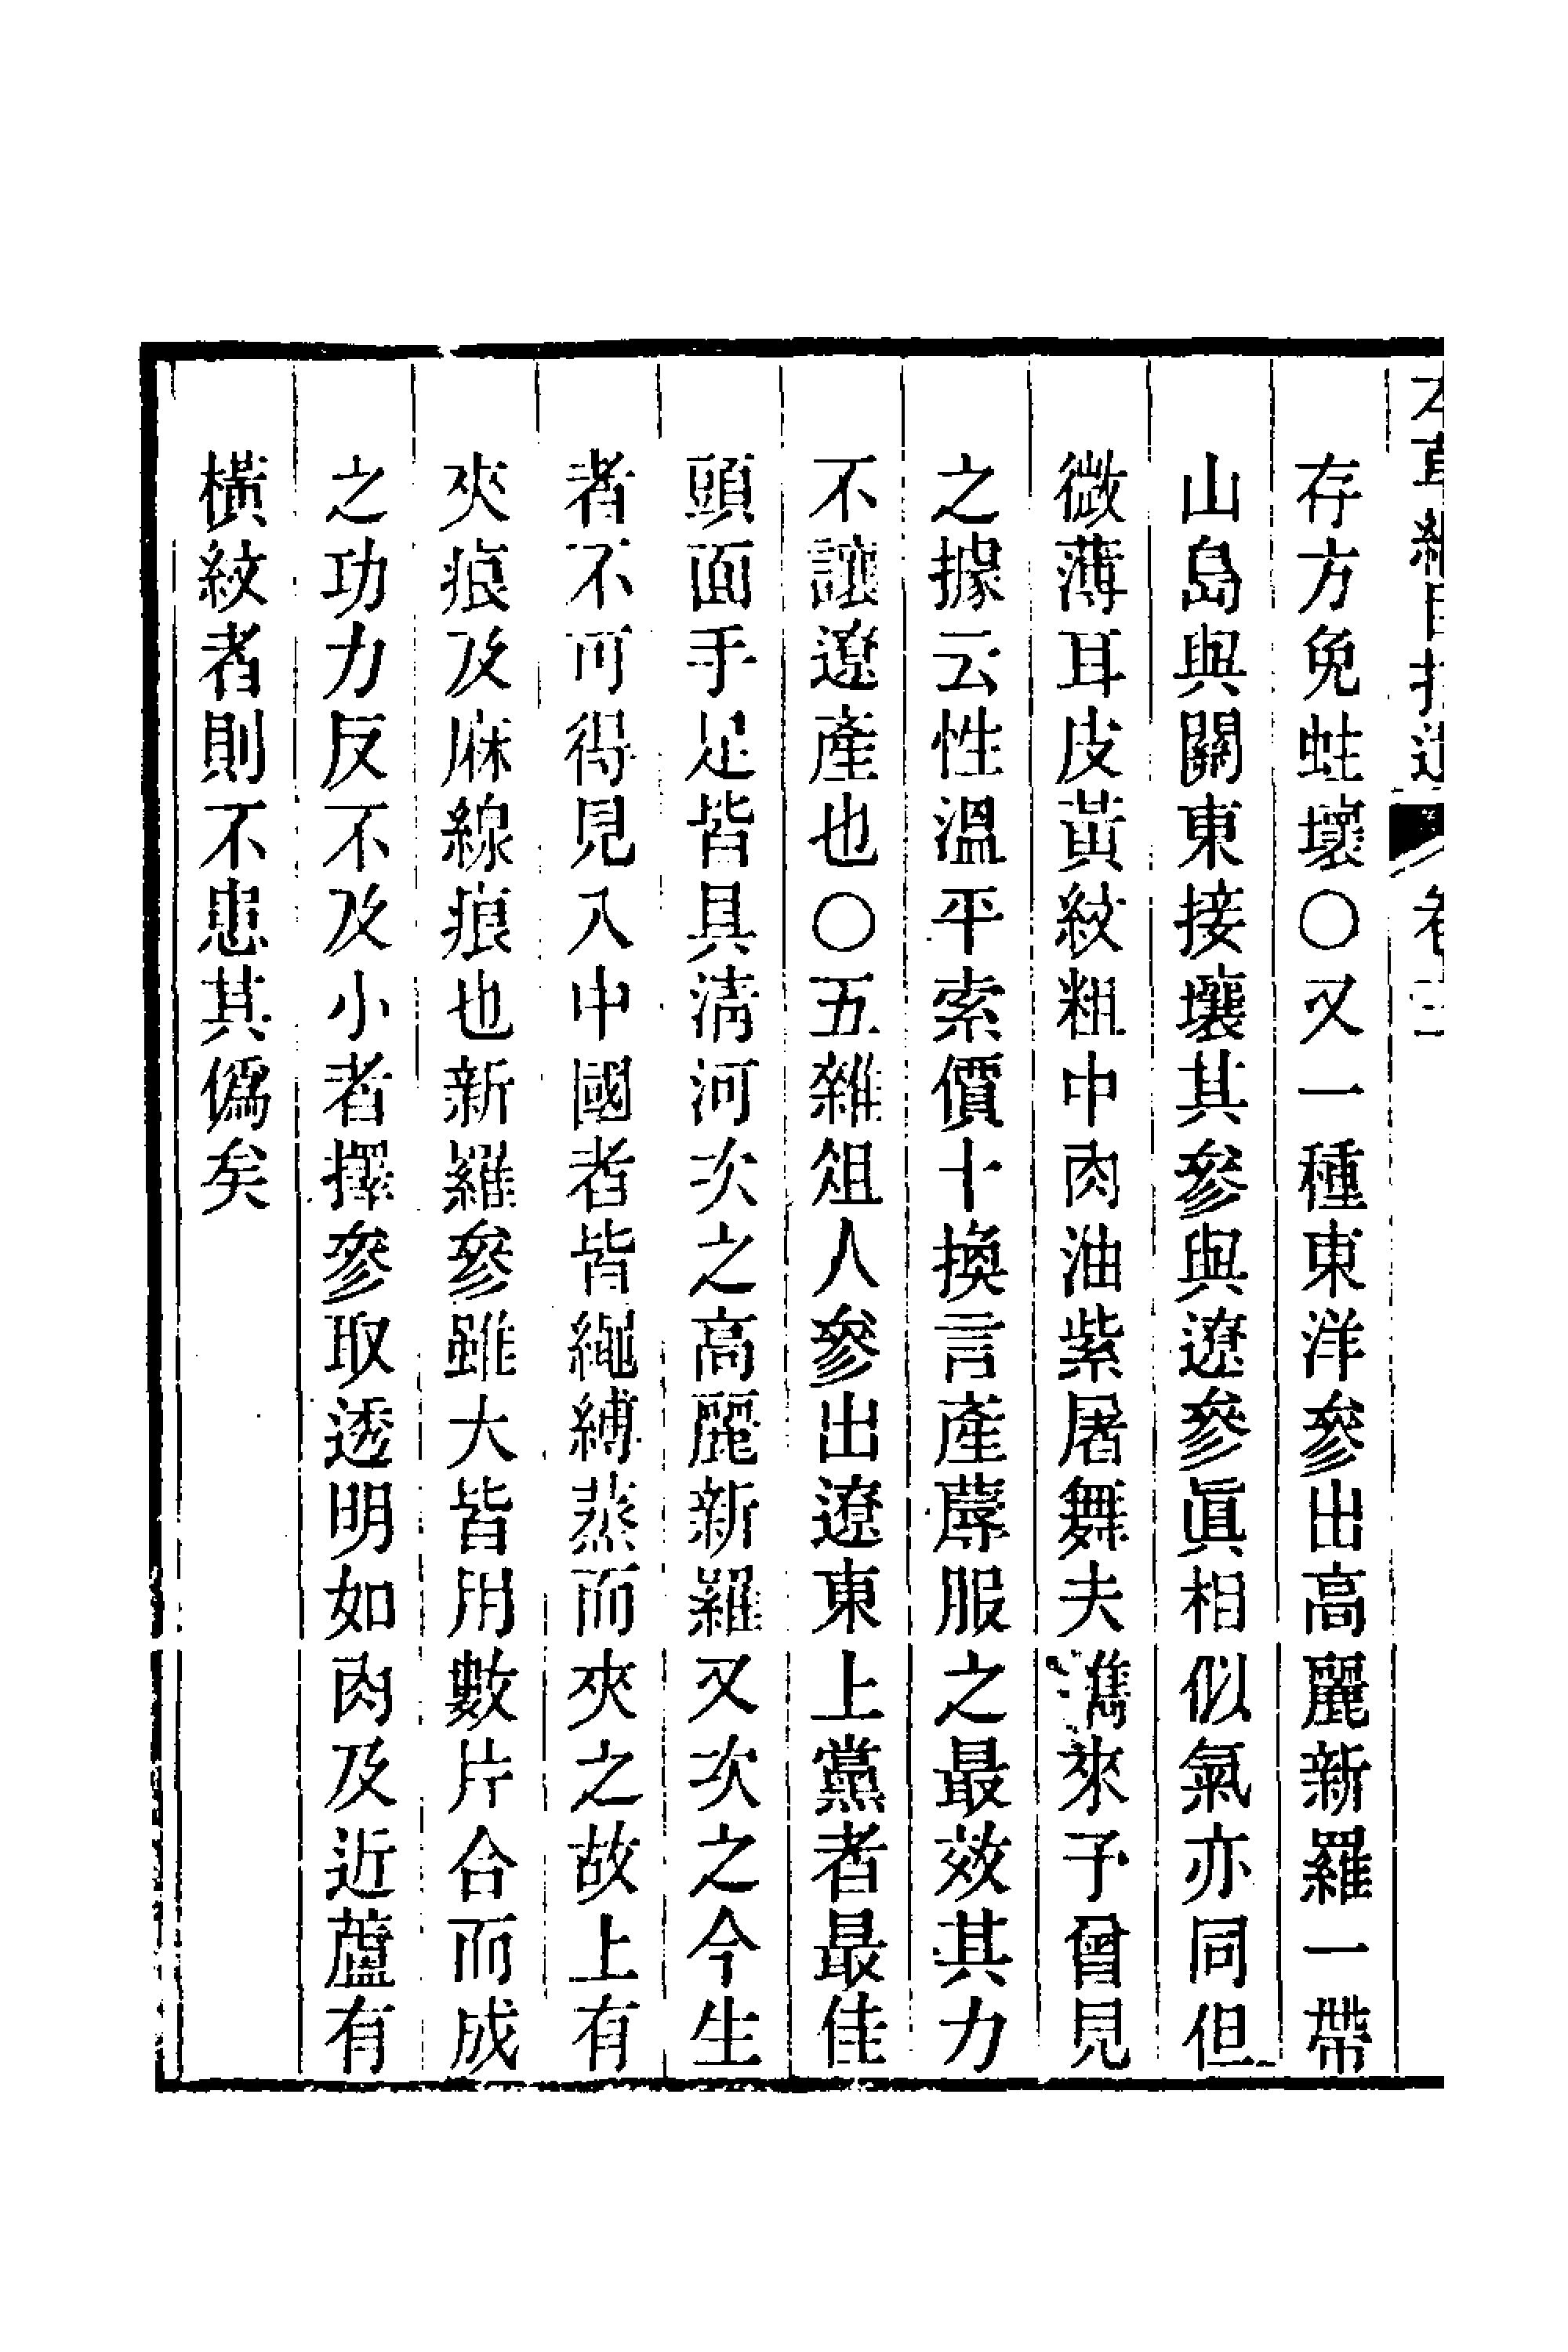 存方免蛀壞○又一種東洋參出高麗新羅一帶
山島與關東接壤其參與遼參眞相似氣亦同但
微薄耳皮黃紋粗中肉油紫屠舞夫攜來予曾見
之據云性溫平索價十換言產蓐服之最效其力
不讓遼產也○五雜俎人參出遼東上黨者最佳
頭面手足皆具淸河次之高麗新羅又次之今生
者不可得見入中國者皆繩縛蒸而夾之故上有
夾痕及麻線痕也新羅參雖大皆用數片合而成
之功力反不及小者擇參取透明如肉及近蘆有
橫紋者則不患其僞矣